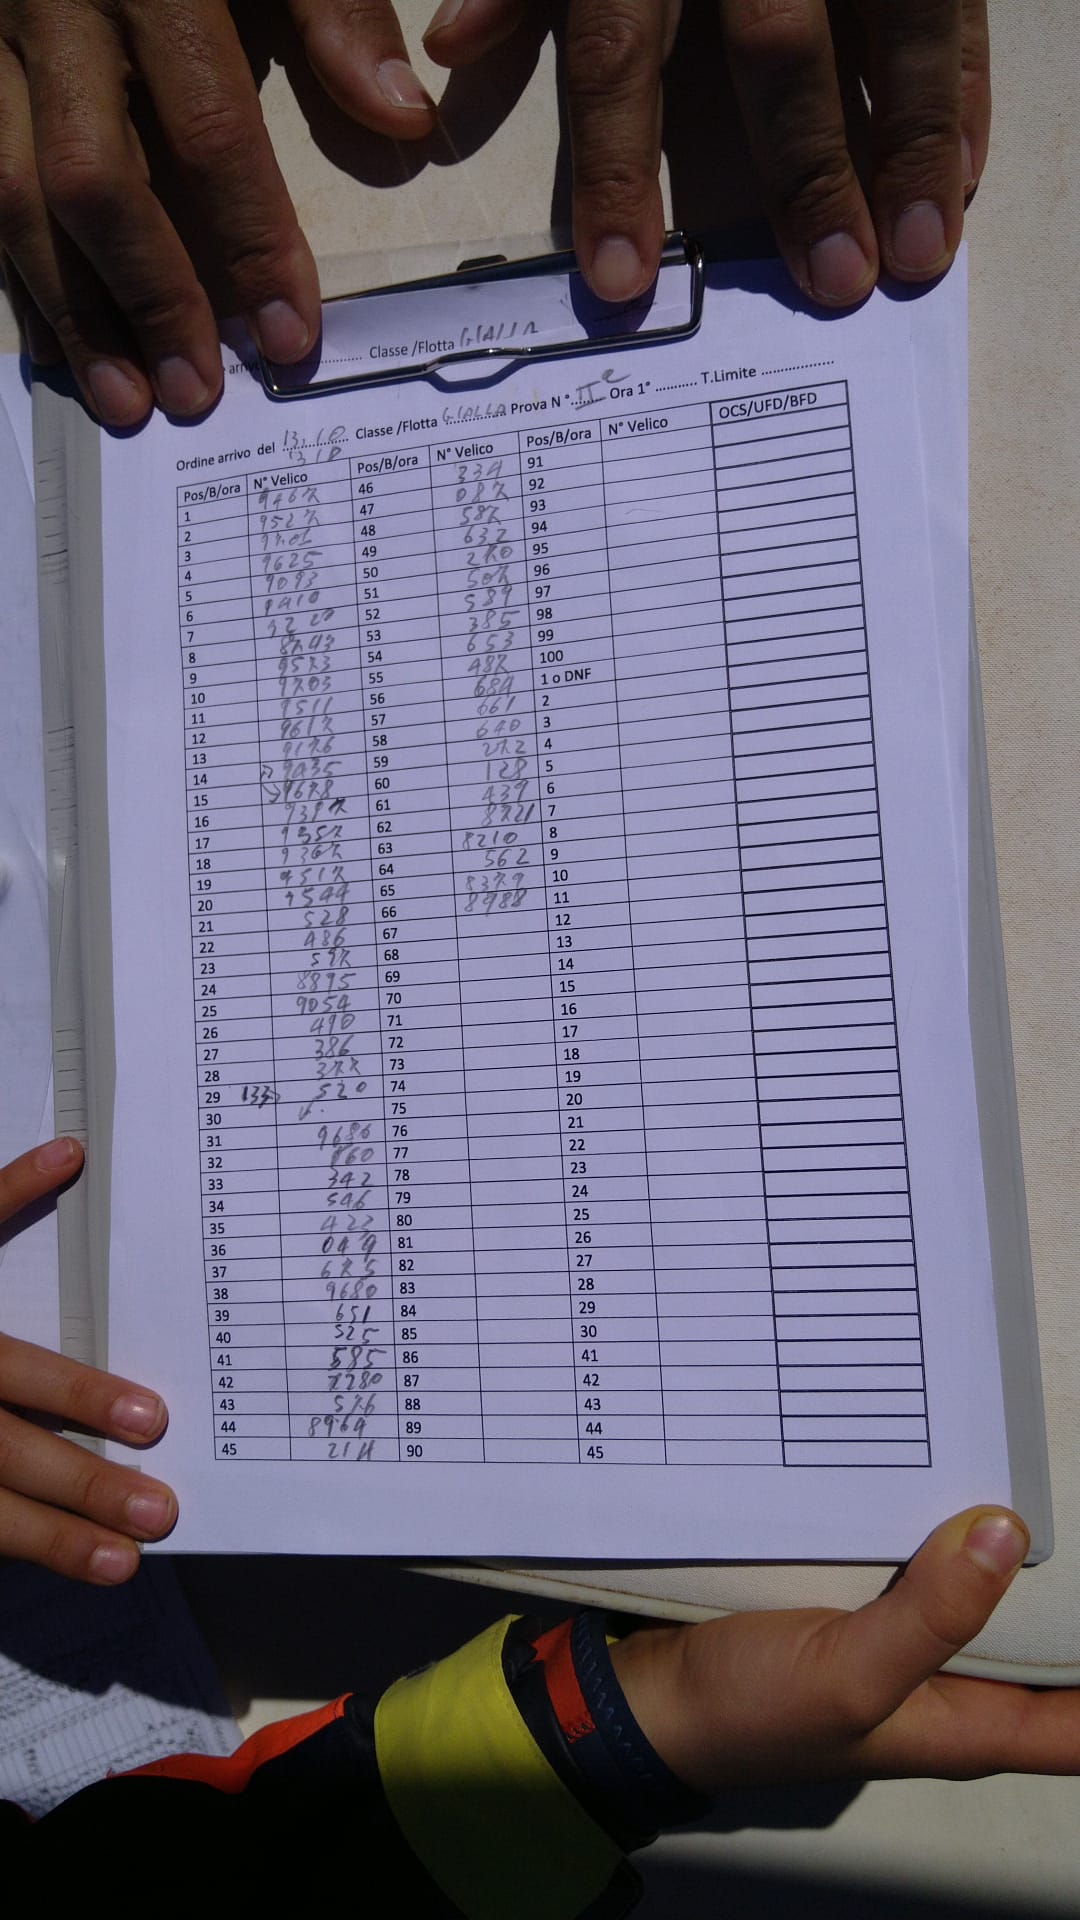 Classe /Flotta GIALLA
Ordine arrivo del 13/10 Classe /Flotta GIALLA Prova N °. II ª Ora 1° ........... T.Limite ..................
Pos/B/ora N° Velico Pos/B/ora N° Velico Pos/B/ora N° Velico OCS/UFD/BFD
1 9467 46 334 91
2 9527 47 087 92
3 48 587 93
4 9625 49 632 94
5 9093 50 270 95
6 9410 51 507 96
7 52 589 97
8 8743 53 385 98
9 9573 54 653 99
10 9703 55 487 100
11 9511 56 684 1 o DNF
12 9617 57 661 2
13 9176 58 640 3
14 9435 59 272 4
15 9678 60 128 5
16 9387 61 439 6
17 9357 62 8721 7
18 9367 63 8210 8
19 9517 64 562 9
20 9544 65 8379 10
21 528 66 8988 11
22 486 67 12
23 597 68 13
24 8895 69 14
25 9054 70 15
26 490 71 16
27 386 72 17
28 377 73 18
29 133 520 74 19
30 75 20
31 9686 76 21
32 860 77 22
33 342 78 23
34 546 79 24
35 423 80 25
36 049 81 26
37 675 82 27
38 9680 83 28
39 651 84 29
40 525 85 30
41 585 86 41
42 7280 87 42
43 576 88 43
44 8969 89 44
45 90 45